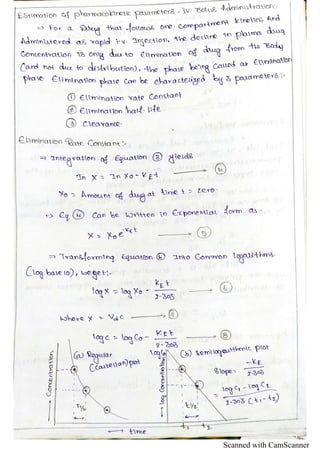 Estimation of pharmacokinetic parameters - IV Bolus Administration:
-> For a Drug that follows one-compartment kinetics And
Administered as rapid i.v. Injection, the decline in plasma drug
Concentration is only due to Elimination of drug from the Body
(and not due to distribution), the phase being called as Elimination
phase. Elimination phase can be characterized by 3 parameters:-
① Elimination rate constant
② Elimination half-life
③ Clearance.
Elimination Rate Constant:-
⇒ Integration of Equation ③ yields:
In X = In Xo - KEt → ④
Xo = Amount of drug at time t = zero.
-> Eq ④ can be written in Exponential form as.
X = Xo e^-KEt → ⑤
⇒ Transforming Equation ⑤ Into Common logarithms
(log base 10), we get:-
log X = log Xo - KE t / 2.303 → ⑥
where X = Vd C → ⑦
log C = log Co - KE t / 2.303 → ⑧
(a) Regular
(Cartesian) plot
Concentration
t½
log Co
(b) Semilogarithmic plot
log Concentration
t½
Slope = -KE / 2.303
= log C1 - log C2 / 2.303 (t1 - t2)
t1 t2
→ time
Scanned with CamScanner